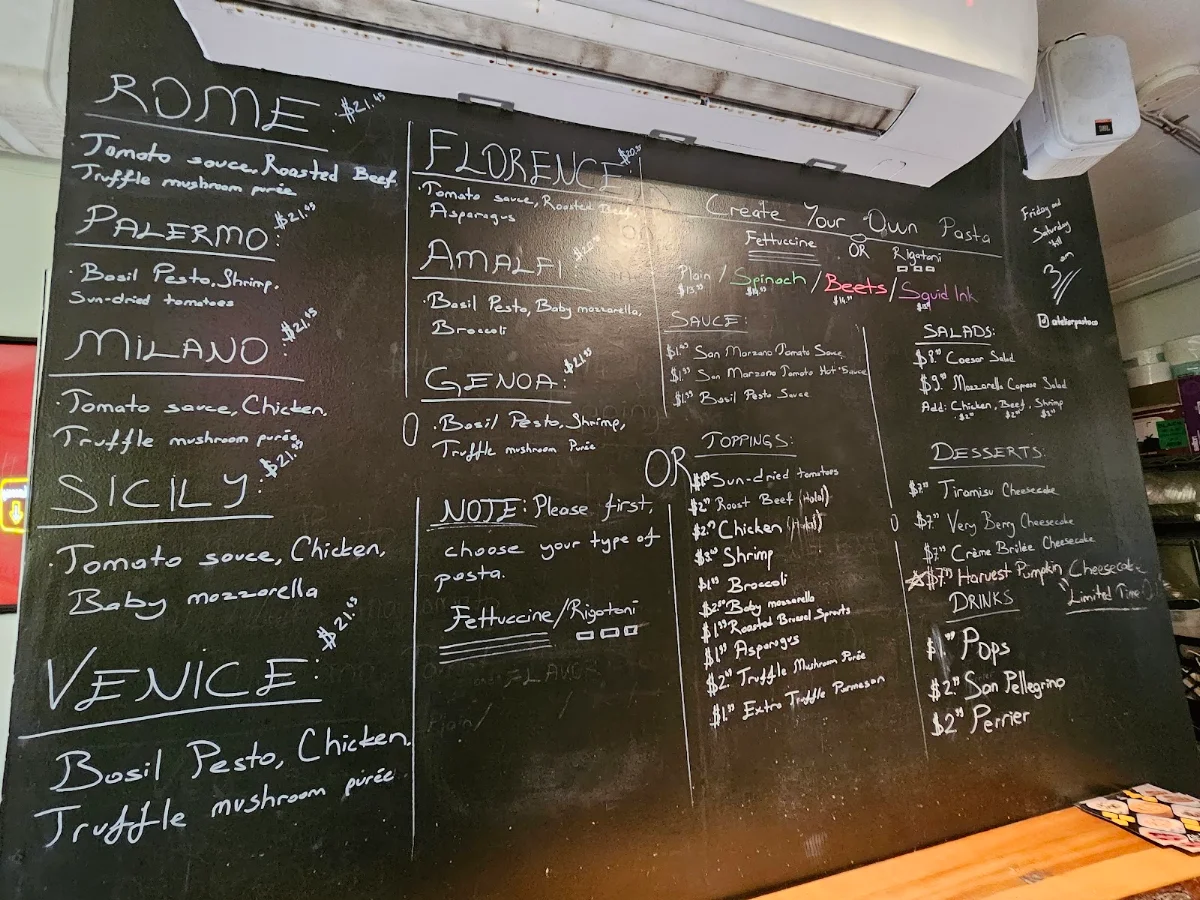 ROME: $21.45
Tomato sauce, Roasted Beef,
Truffle mushroom purée
PALERMO: $21.45
· Basil Pesto, Shrimp,
Sun-dried tomatoes
MILANO: $21.45
· Tomato sauce, Chicken,
Truffle mushroom purée
SICILY: $21.45
· Tomato sauce, Chicken,
Baby mozzarella
VENICE: $21.45
Basil Pesto, Chicken,
Truffle mushroom purée
FLORENCE:
· Tomato sauce, Roasted Beef,
Asparagus
AMALFI
· Basil Pesto, Baby mozzarella,
Broccoli
GENOA: $21.45
· Basil Pesto, Shrimp,
Truffle mushroom Purée
NOTE: Please first,
choose your type of
pasta.
Fettuccine/Rigatoni
FLAVOR
Plain/
OR
Create Your Own Pasta
Fettuccine OR Rigatoni
Plain / Spinach / Beets / Squid Ink
SAUCE:
San Marzano Tomato Sauce
San Marzano Tomato Hot Sauce
Basil Pesto Sauce
TOPPINGS:
Sun-dried tomatoes
Roast Beef (Halal)
Chicken (Halal)
Shrimp
Broccoli
Baby mozzarella
Roasted Brussel Sprouts
Asparagus
Truffle Mushroom Purée
Extra Truffle Parmesan
Friday and
Saturday
till
3
am
@atelierpastaco
SALADS:
Caesar Salad
Mozzarella Caprese Salad
Add: Chicken, Beef, Shrimp
DESSERTS:
Tiramisu Cheesecake
Very Berry Cheesecake
Crème Brûlée Cheesecake
Harvest Pumpkin Cheesecake
"Limited Time"
DRINKS
Pops
San Pellegrino
Perrier
JBL